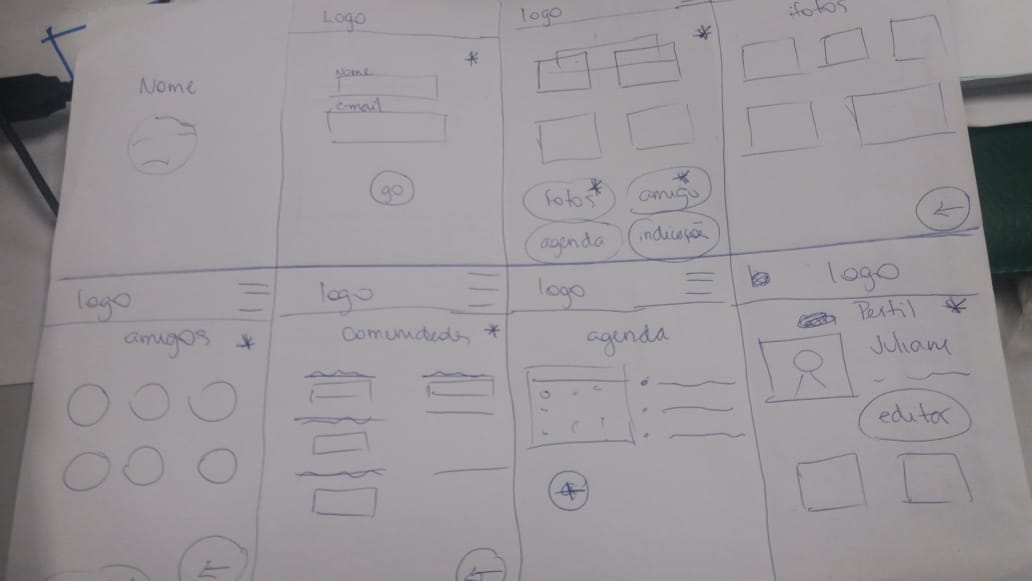 Nome
Logo
Nome
e-mail
go
logo
fotos
amigo
agenda
indicação
fotos
logo
amigos
logo
Comunidades
logo
agenda
logo
Perfil
Juliane
editar